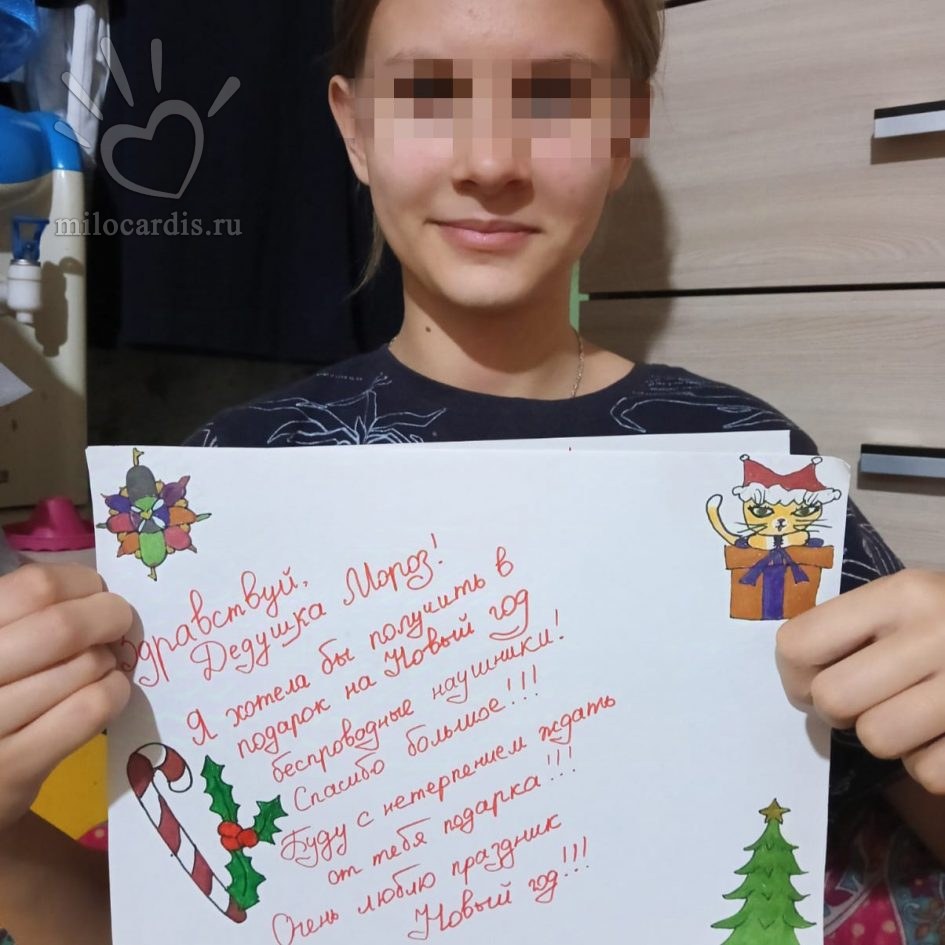 milocardis.ru
Здравствуй,
Дедушка Мороз!
Я хотела бы получить в
подарок на Новый год
беспроводные наушники!
Спасибо большое!!!
Буду с нетерпением ждать
от тебя подарка!!!
Очень люблю праздник
Новый год!!!